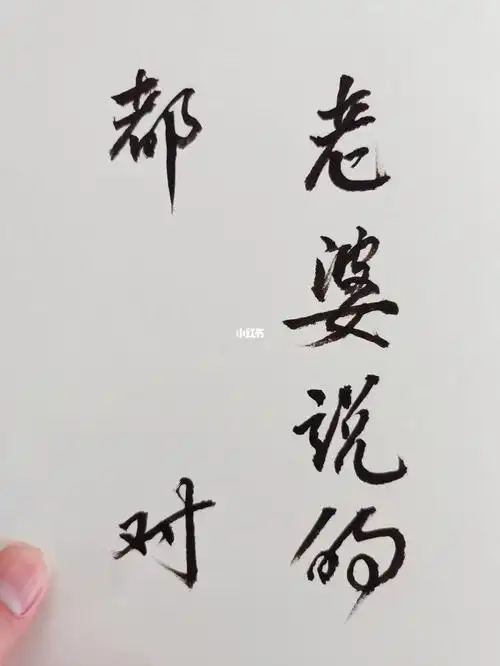 老婆说的
都对
小红书